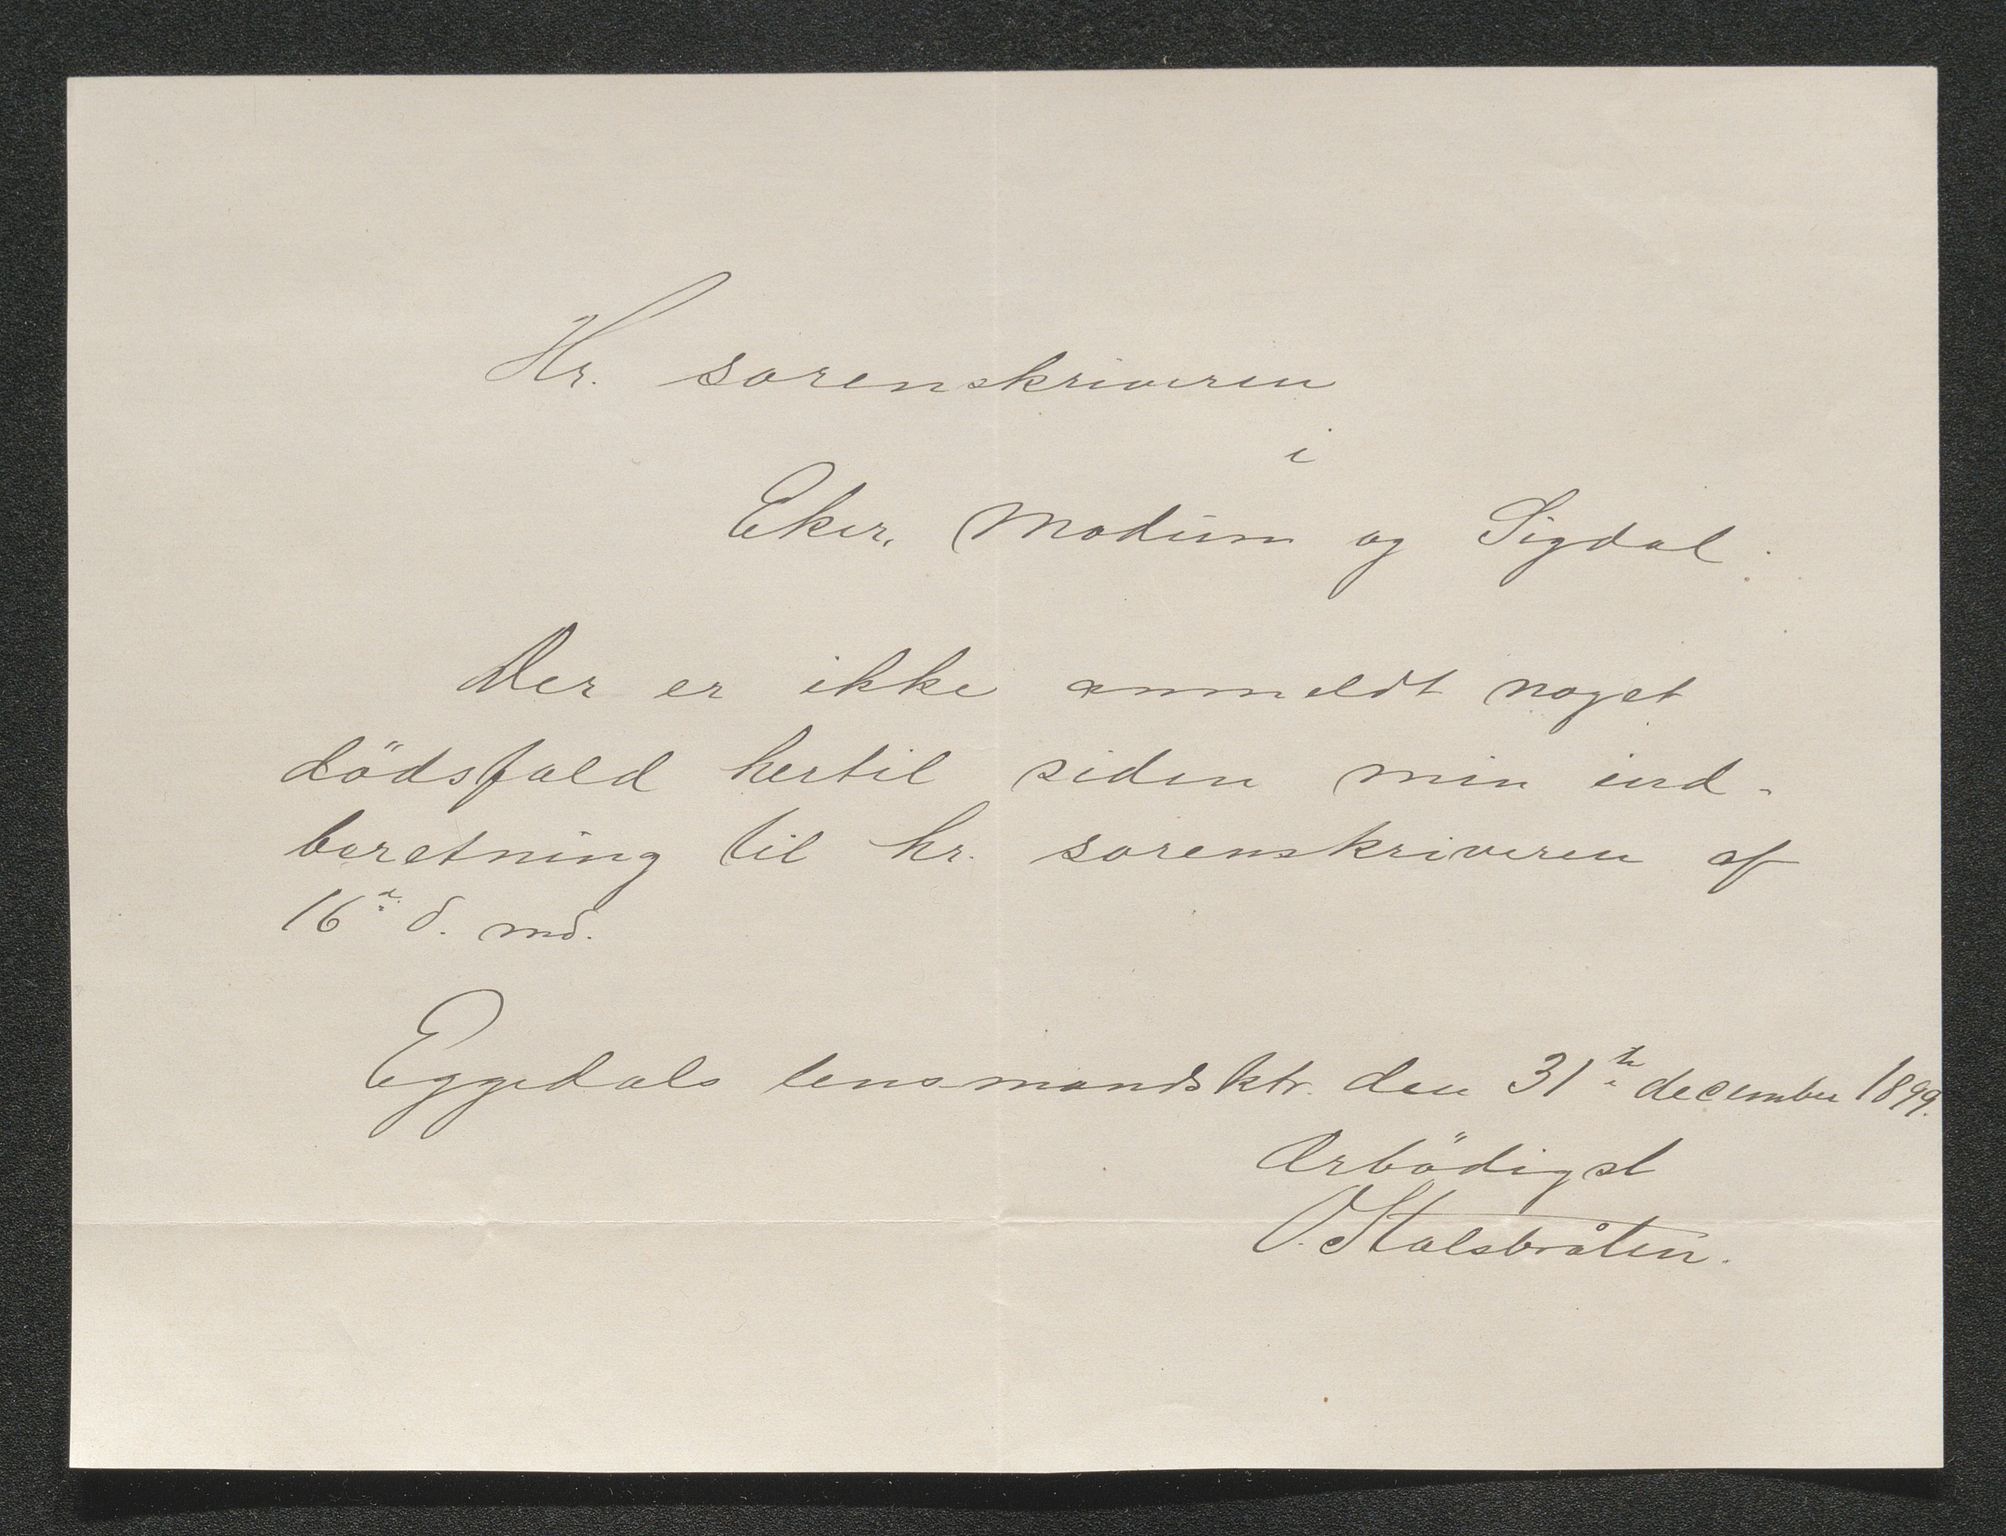 Hr. sorenskriveren
i
Eker, Modum og Sigdal.
Der er ikke anmeldt noget
dödsfald hertil siden min ind-
beretning til hr. sorenskriveren af
16de d. md.
Eggedals lensmandsktr. den 31te december 1899.
Ærbödigst
O. Stalsbråten.